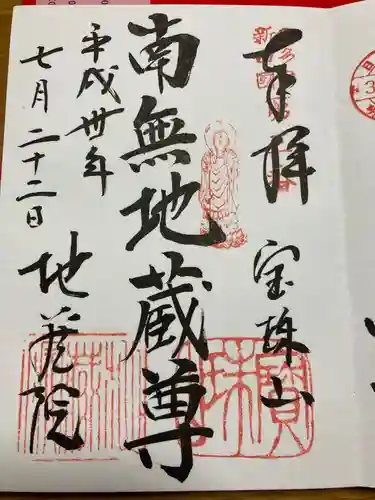 奉拝
宝珠山
南無地蔵尊
平成卅年
七月二十二日
地蔵院